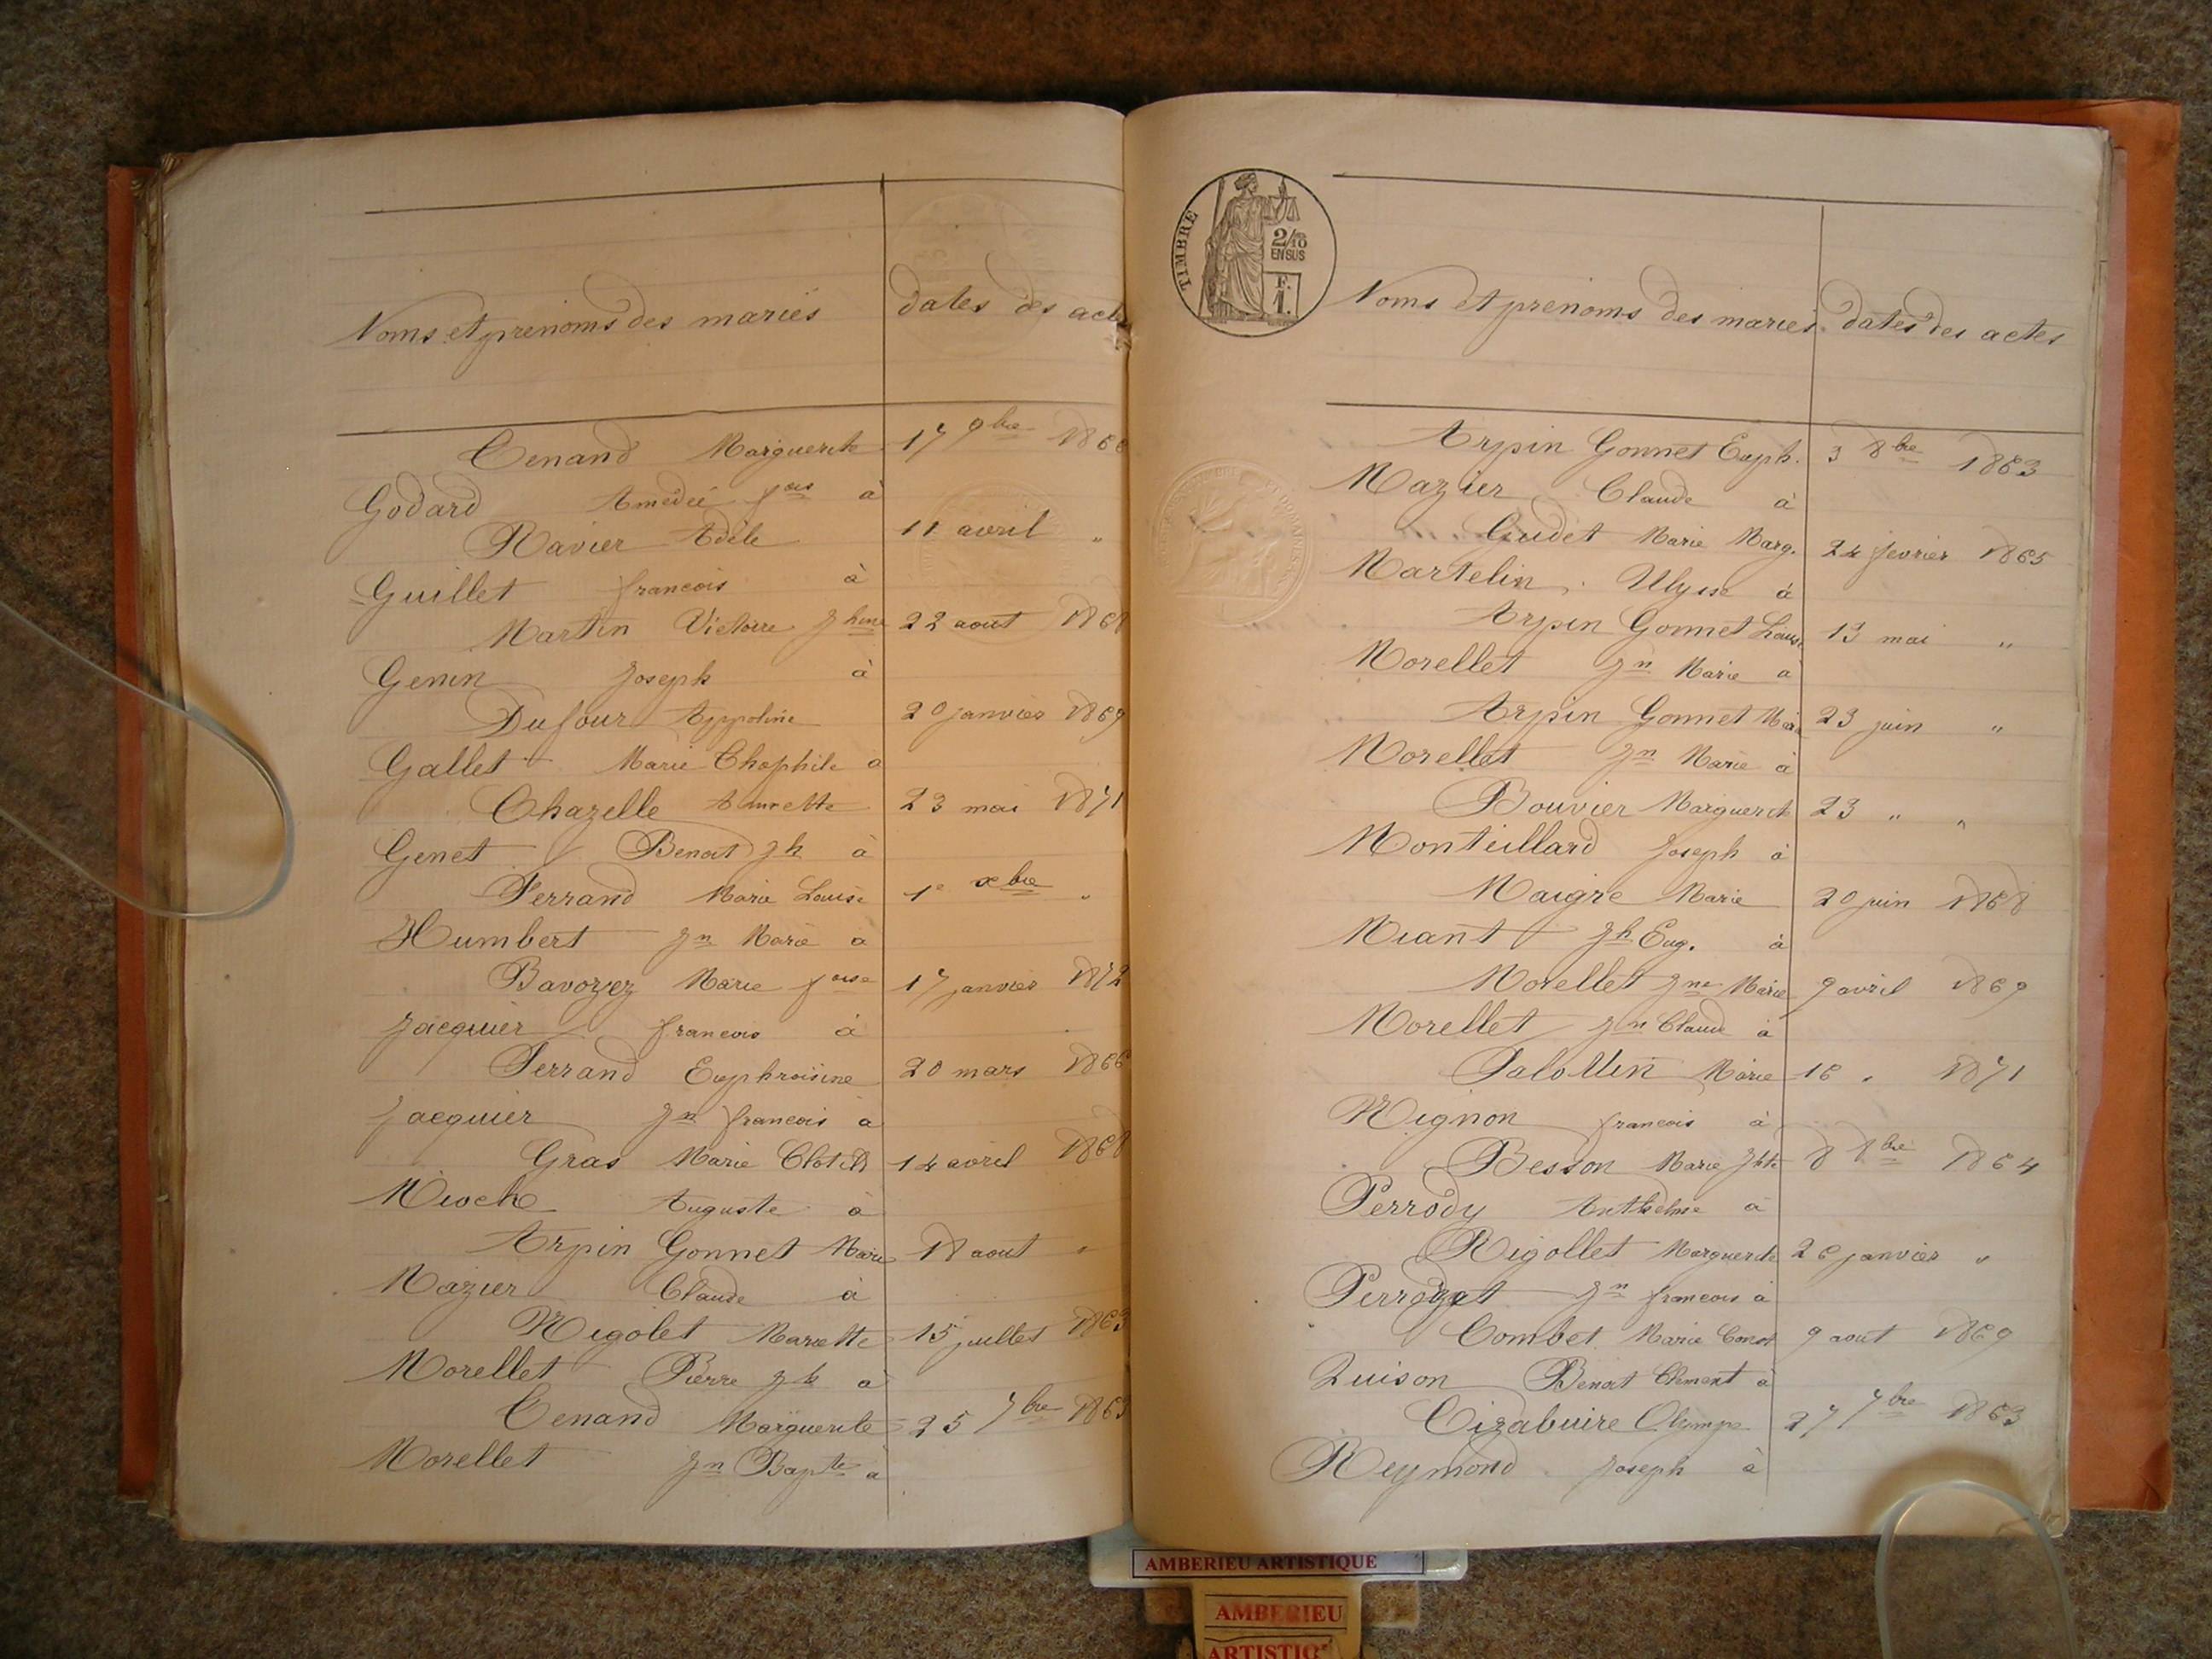 Noms et prenoms des mariés dates des act
Cenand Marguerite 17 9bre 186
Godard Amédée fois à
Ravier Adèle 11 avril "
Guillet francois à
Martin Victoire Jhine 22 aout 1868
Genin Joseph à
Dufour Appoline 20 janvier 1869
Gallet Marie Théophile à
Chazelle Annette 23 mai 1871
Genet Benoit Jh à
Ferrand Marie Louise 1e xbre "
Humbert Jn Marie à
Bavozez Marie foise 17 janvier 1872
Jacquier francois à
Ferrand Euphroisine 20 mars 1866
Jacquier Jn francois à
Gras Marie Clotild 14 avril 1868
Mioche Auguste à
Arpin Gonnet Marie 18 aout "
Mazier Claude à
Rigolet Mariette 15 juillet 1863
Morellet Pierre Jh à
Cenand Marguerite 25 7bre 1863
Morellet Jn Bapte à
TIMBRE
2/10
EN SUS
F.
1.
Noms et prenoms des mariés dates des actes
Arpin Gonnet Euph. 3 8bre 1863
Mazier Claude à
Gudet Marie Marg. 24 fevrier 1865
Martelin Ulysse à
Arpin Gonnet Louise 13 mai "
Morellet Jn Marie à
Arpin Gonnet Marie 23 juin "
Morellet Jn Marie à
Bouvier Marguerite 23 " "
Monteillard Joseph à
Maigre Marie 20 juin 1868
Miant Jh Eug. à
Morellet Jne Marie 9 avril 1869
Morellet Jn Claude à
Marie 16 " 1871
Mignon francois à
Besson Marie Jhte 8 8bre 1864
Perrody Anthelme à
Rigollet Marguerite 26 janvier "
Jn francois à
Combet Marie Const 9 aout 1869
Quison Benoit Clement à
Cizabuire Olympe 27 7bre 1863
Reymond Joseph à
AMBERIEU ARTISTIQUE
AMBERIEU